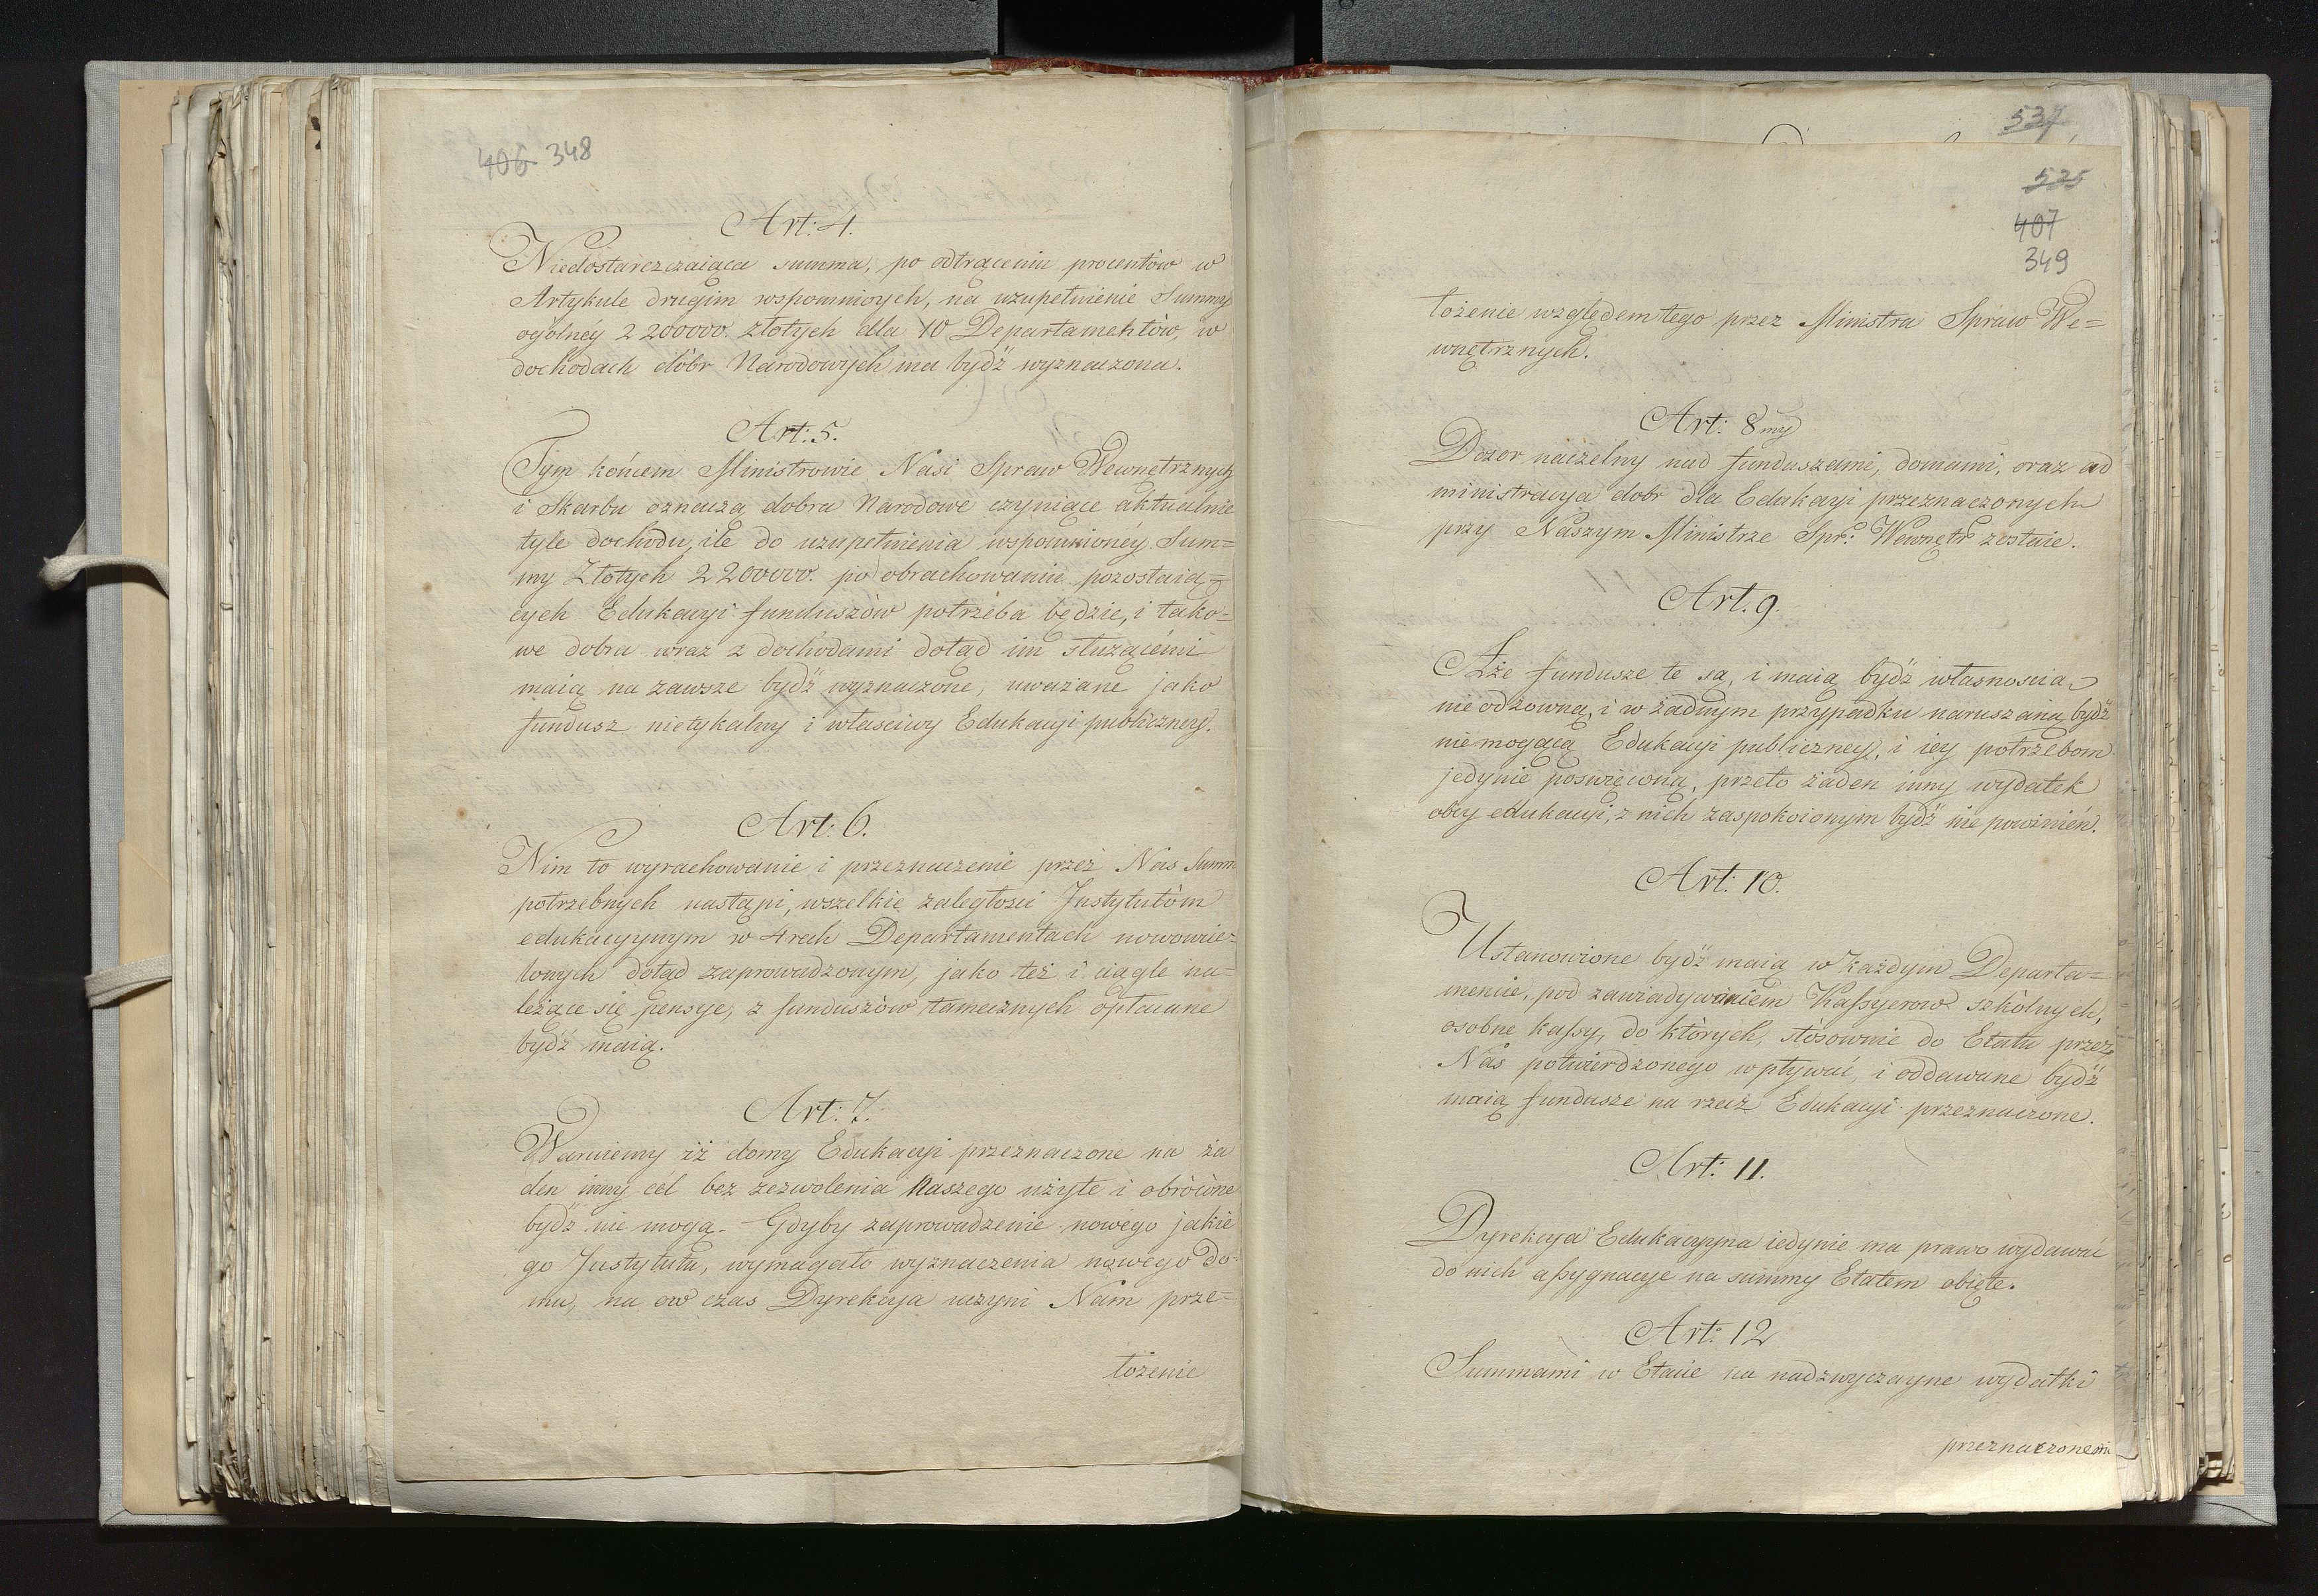 406 348
Art: 4.
Niedostarczaiąca summa, po odtrąceniu procentów w
Artykule drugim wspomnioych, na uzupełnienie Summy
ogólnéy 2200000. złotych dla 10 Departamentów, w
dochodach dóbr Narodowych ma bydź wyznaczona.
Art: 5.
Tym końcem Ministrowie Nasi Spraw Wewnętrznych
i Skarbu oznaczą dobra Narodowe czyniące aktualnie
tyle dochodu, ile do uzupełnienia wspomnionéy Sum=
my Złotych 2200000. po obrachowaniu pozostaią=
cych Edukacyi funduszów potrzeba będzie, i tako=
we dobra wraz z dochodami dotąd im służącemi
maią na zawsze bydź wyznaczone, uważane jako
fundusz nietykalny i właściwy Edukacyi publiczney.
Art: 6.
Nim to wyrachowanie i przeznaczenie przez Nas Summ
potrzebnych nastąpi, wszelkie zaległości Jnstytutóm
edukacyynym w 4rech Departamentach nowowcie=
lonych dotąd zaprowadzonym, jako też i ciągle na=
leżące się pensye, z funduszów tamecznych opłacane
bydź maią.
Art: 7.
Waruiemy iż domy Edukacyi przeznaczone na ża
den inny cél bez zezwolenia Naszego użyte i obrócone
bydź nie mogą. Gdyby zaprowadzenie nowego jakie
go Jnstytutu, wymagało wyznaczenia nowego do=
mu, na ow czas Dyrekcya uczyni Nam prze=
łożenie
537
525
407
349
łożenie względem tego przez Ministra Spraw We=
wnętrznych.
Art: 8my
Dozor naczelny nad funduszami, domami, oraz ad
ministracya dobr dla Edukacyi przeznaczonych
przy Naszym Ministrze Spr: Wewnętr zostaie.
Art. 9.
Aże fundusze te są, i maią bydź własnością
nieodzowną, i w żadnym przypadku naruszaną bydź
niemogącą Edukacyi publiczney, i iey potrzebom
jedynie poswięconą, przeto żaden inny wydatek
obcy edukacyi, z nich zaspokoionym bydź nie powinień.
Art: 10.
Ustanowione bydź maią w każdym Departa=
mencie, pod zawiadywaniem Kassyerow szkólnych,
osobne kassy, do których, stósownie do Etatu przez
Nas potwierdzonego wpływać, i oddawane bydź
maią fundusze na rzecz Edukacyi przeznaczone.
Art: 11.
Dyrekcya Edukacyyna iedynie ma prawo wydawać
do nich assygnacye na summy Etatem obięte.
Art: 12
Summami w Etacie na nadzwyczayne wydatki
przeznaczonemi